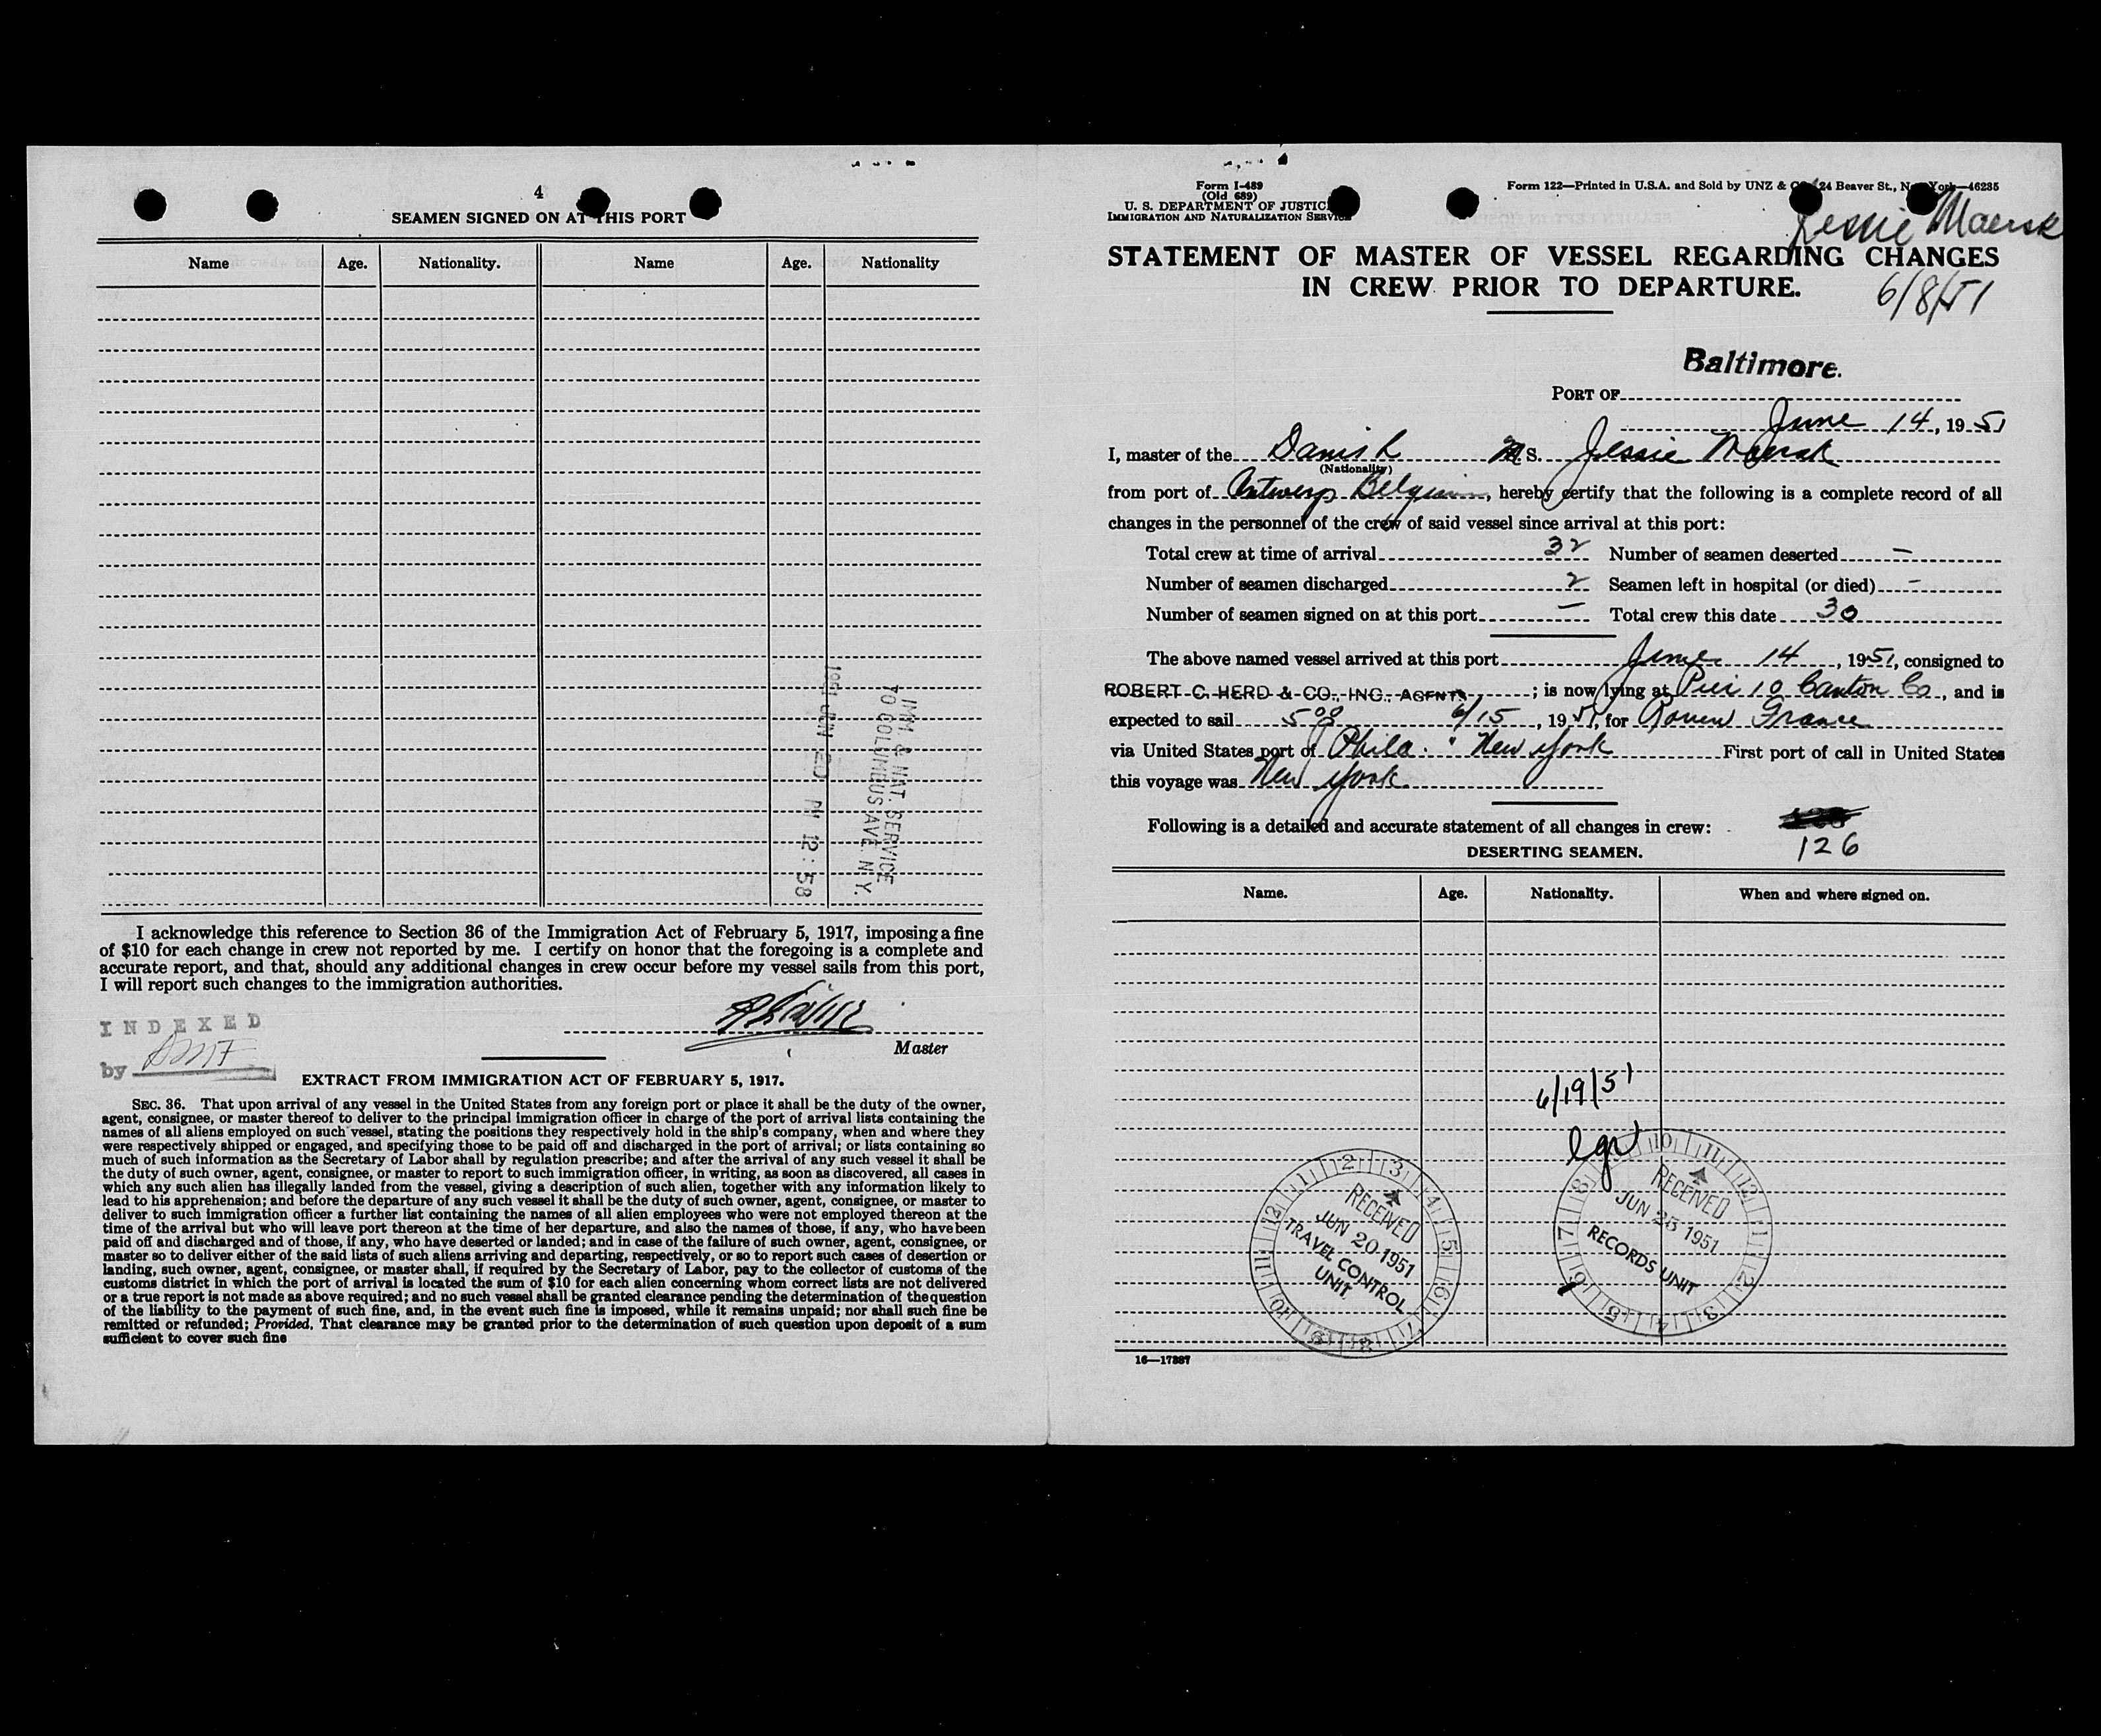 4
SEAMEN SIGNED ON AT THIS PORT
Name Age. Nationality. Name Age. Nationality
1951 JUN 20 PM 12:58
IMM. & NAT. SERVICE
70 COLUMBUS AVE. N.Y.
I acknowledge this reference to Section 36 of the Immigration Act of February 5, 1917, imposing a fine
of $10 for each change in crew not reported by me. I certify on honor that the foregoing is a complete and
accurate report, and that, should any additional changes in crew occur before my vessel sails from this port,
I will report such changes to the immigration authorities.
INDEXED
by
Master
EXTRACT FROM IMMIGRATION ACT OF FEBRUARY 5, 1917.
SEC. 36. That upon arrival of any vessel in the United States from any foreign port or place it shall be the duty of the owner,
agent, consignee, or master thereof to deliver to the principal immigration officer in charge of the port of arrival lists containing the
names of all aliens employed on such vessel, stating the positions they respectively hold in the ship's company, when and where they
were respectively shipped or engaged, and specifying those to be paid off and discharged in the port of arrival; or lists containing so
much of such information as the Secretary of Labor shall by regulation prescribe; and after the arrival of any such vessel it shall be
the duty of such owner, agent, consignee, or master to report to such immigration officer, in writing, as soon as discovered, all cases in
which any such alien has illegally landed from the vessel, giving a description of such alien, together with any information likely to
lead to his apprehension; and before the departure of any such vessel it shall be the duty of such owner, agent, consignee, or master to
deliver to such immigration officer a further list containing the names of all alien employees who were not employed thereon at the
time of the arrival but who will leave port thereon at the time of her departure, and also the names of those, if any, who have been
paid off and discharged and of those, if any, who have deserted or landed; and in case of the failure of such owner, agent, consignee, or
master so to deliver either of the said lists of such aliens arriving and departing, respectively, or so to report such cases of desertion or
landing, such owner, agent, consignee, or master shall, if required by the Secretary of Labor, pay to the collector of customs of the
customs district in which the port of arrival is located the sum of $10 for each alien concerning whom correct lists are not delivered
or a true report is not made as above required; and no such vessel shall be granted clearance pending the determination of the question
of the liability to the payment of such fine, and, in the event such fine is imposed, while it remains unpaid; nor shall such fine be
remitted or refunded; Provided, That clearance may be granted prior to the determination of such question upon deposit of a sum
sufficient to cover such fine
Form I-489
(Old 689)
U. S. DEPARTMENT OF JUSTICE
IMMIGRATION AND NATURALIZATION SERVICE
Form 122—Printed in U.S.A. and Sold by UNZ & CO., 24 Beaver St., New York—46235
Jessie Maersk
STATEMENT OF MASTER OF VESSEL REGARDING CHANGES
IN CREW PRIOR TO DEPARTURE.
6/8/51
Baltimore.
PORT OF
June 14, 1951
I, master of the Danish M S. Jessie Maersk
(Nationality)
from port of Antwerp Belgium, hereby certify that the following is a complete record of all
changes in the personnel of the crew of said vessel since arrival at this port:
Total crew at time of arrival 32 Number of seamen deserted –
Number of seamen discharged 2 Seamen left in hospital (or died) –
Number of seamen signed on at this port – Total crew this date 30
The above named vessel arrived at this port June 14, 1951, consigned to
ROBERT C. HERD & CO., INC., AGENTS ; is now lying at Pier 10 Canton Co, and is
expected to sail 5 00 6/15, 1951, for Rouen France
via United States port of Phila. " New York First port of call in United States
this voyage was New York
Following is a detailed and accurate statement of all changes in crew:
126
DESERTING SEAMEN.
Name. Age. Nationality. When and where signed on.
6/19/51
RECEIVED
JUN 20 1951
TRAVEL CONTROL
UNIT
RECEIVED
JUN 25 1951
RECORDS UNIT
16—17387